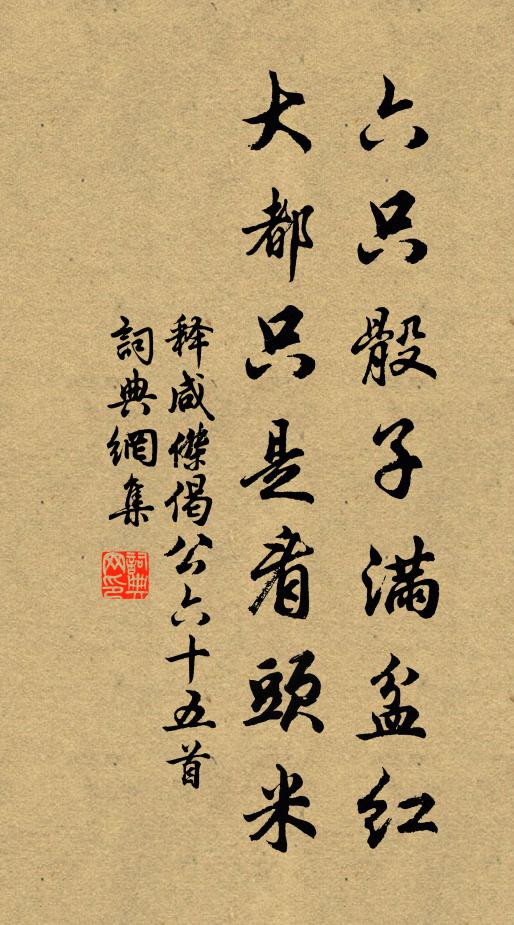 六只骰子滿盆紅
大都只是看頭米
释咸傑偈公六十五首
詞典網集
詞典网印